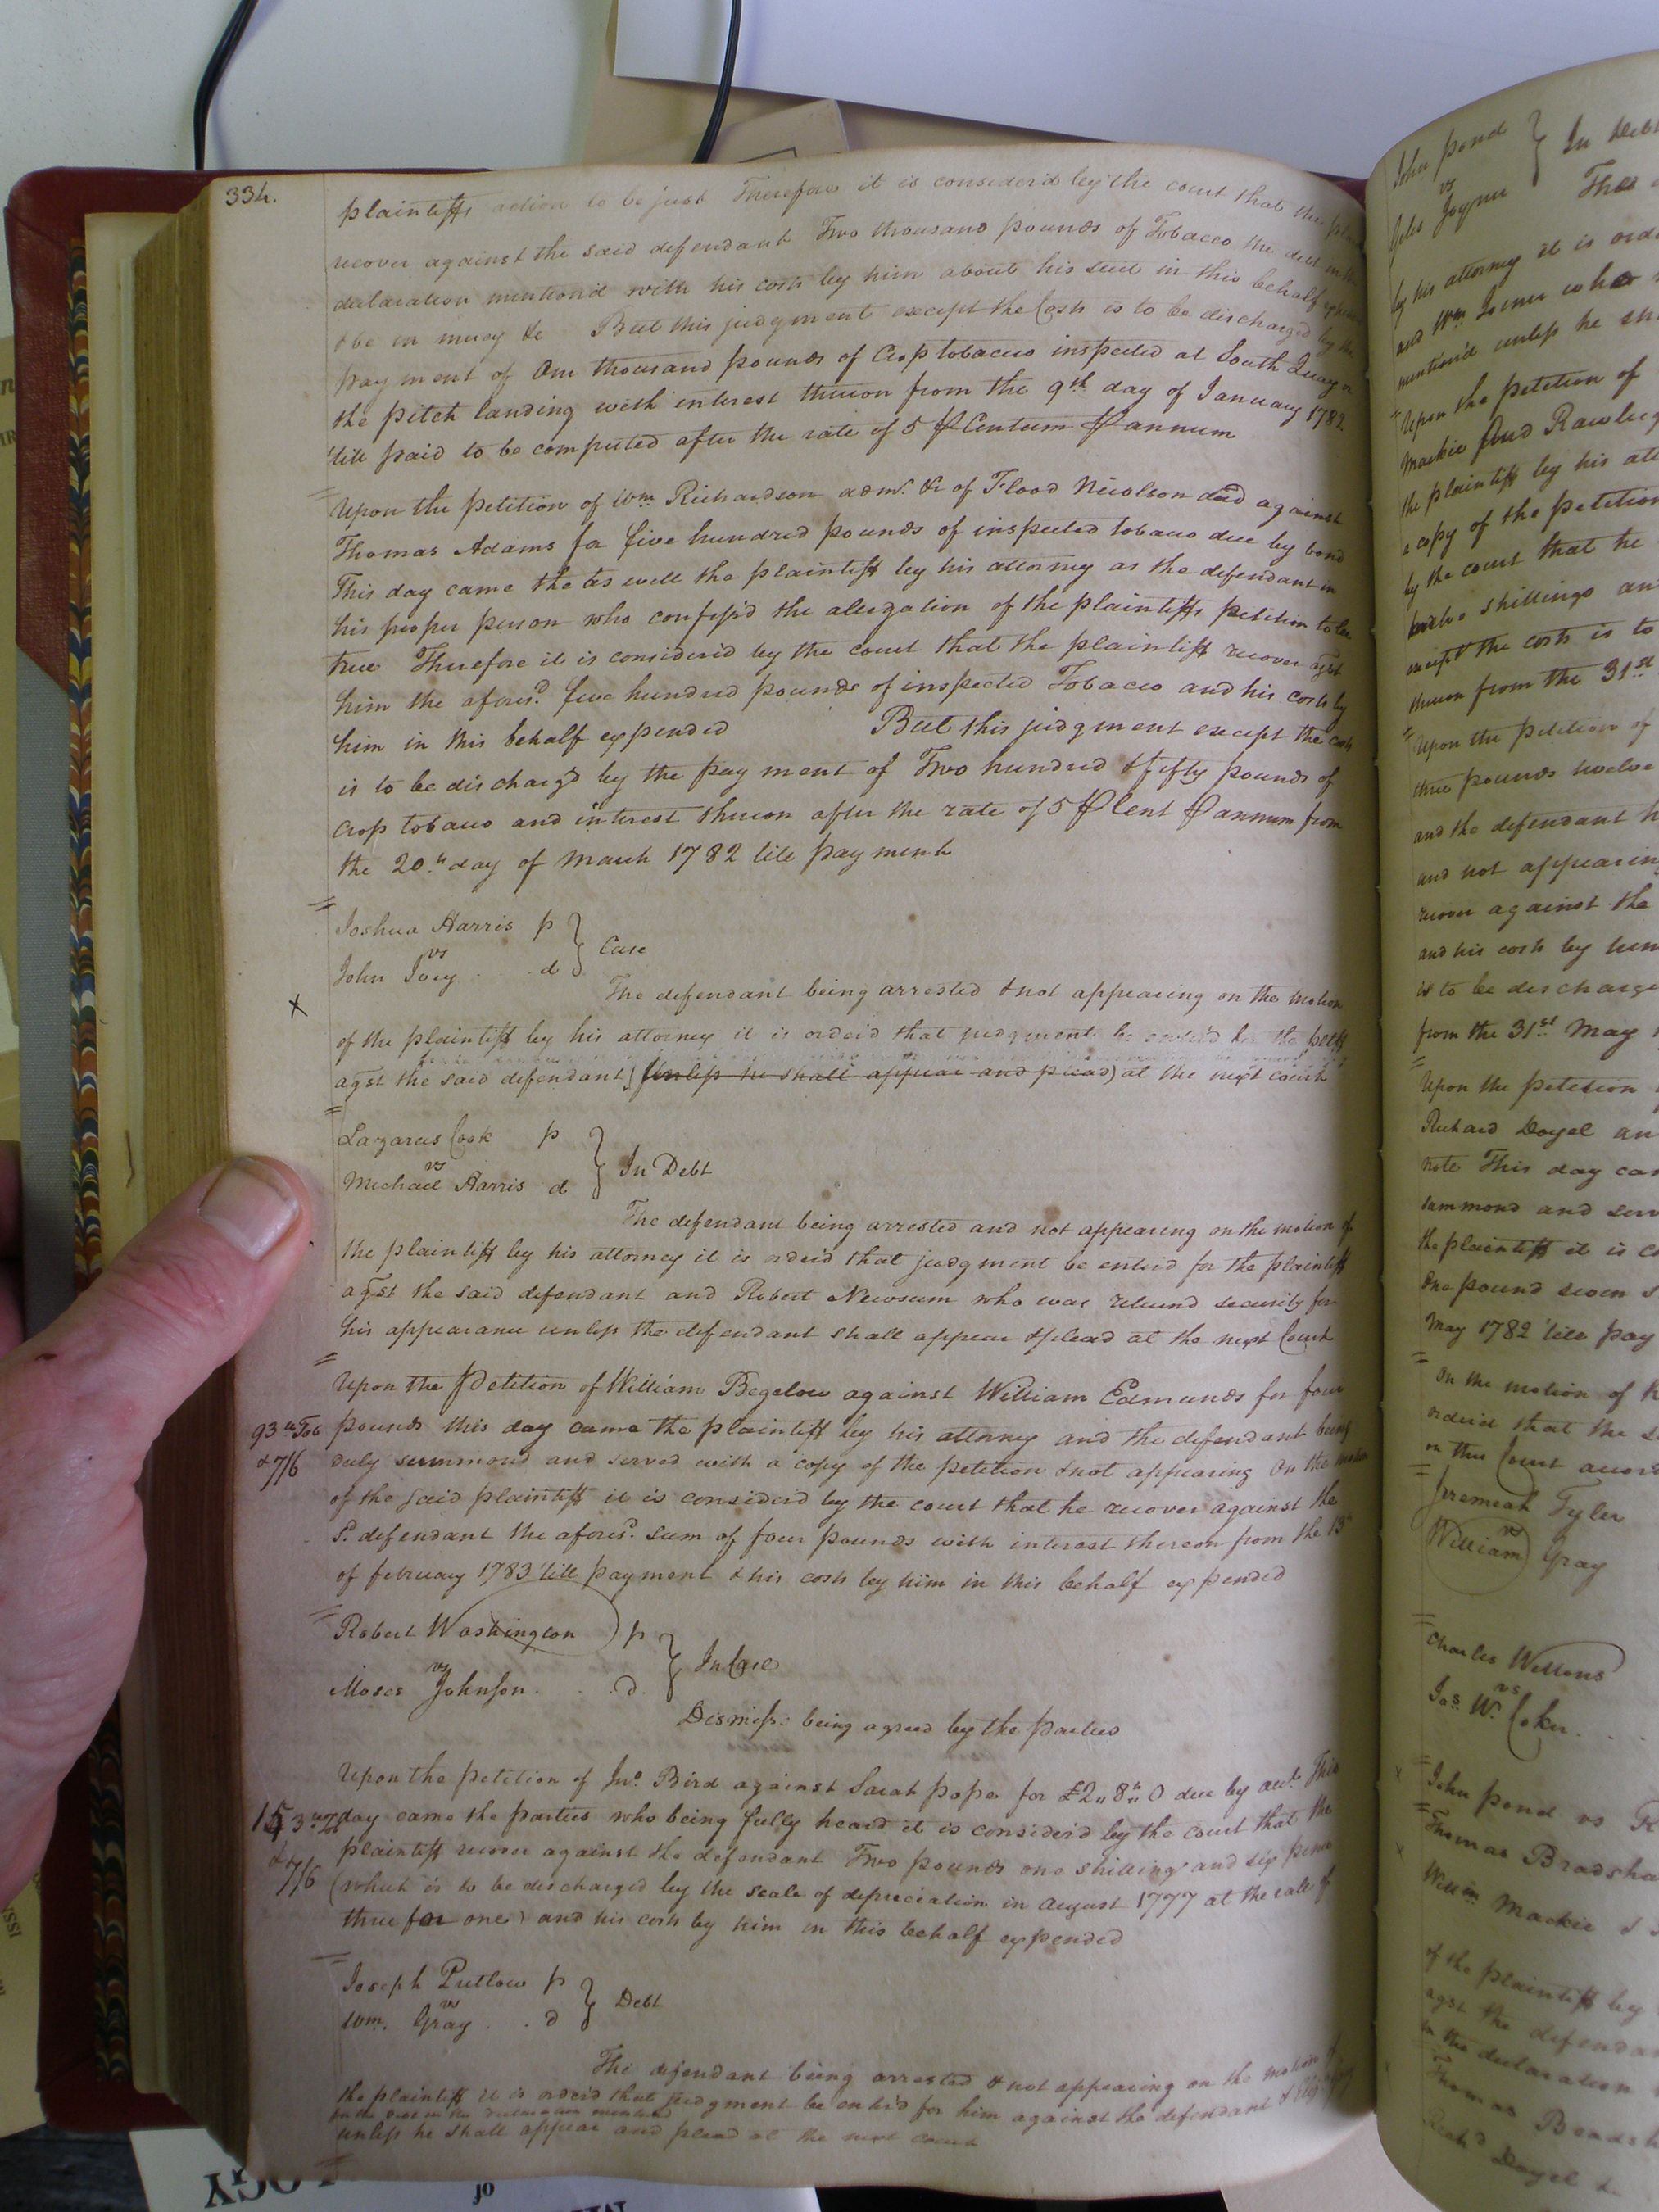 334.
plaintiffs action to be just Therefore it is consider'd by the court that the
recover against the said defendant Two thousand pounds of Tobacco the debt in the
declaration mention'd with his costs by him about his suit in this behalf
& be in mercy &c But this judgment except the Costs is to be discharged by the
payment of One thousand pounds of Crop tobacco inspected at South Quay or
the pitch landing with interest thereon from the 9th day of January 1782
'till paid to be computed after the rate of 5 ⅌ Centum ⅌ annum
Upon the petition of Wm Richardson admr. &c of Flood Nicolson decd against
Thomas Adams for five hundred pounds of inspected tobacco due by bond
This day came the as well the plaintiff by his attorney as the defendant in
his proper person who confess'd the allegation of the plaintiffs petition to be
true Therefore it is consider'd by the court that the plaintiff recover agst
him the afores.d five hundred pounds of inspected Tobacco and his costs by
him in this behalf expended But this judgment except the costs
is to be discharg'd by the payment of Two hundred & fifty pounds of
Crop tobacco and interest thereon after the rate of 5 ⅌ Cent ⅌ annum from
the 20.th day of March 1782 till payment
Joshua Harris p
vs
John Ivey d
Case
X
The defendant being arrested & not appearing on the motion
of the plaintiff by his attorney it is order'd that judgment be enter'd for the pltff
agst the said defendant (unless he shall appear and plead) at the next court
Lazarus Cook p
vs
Michael Harris d
In Debt
The defendant being arrested and not appearing on the motion of
the plaintiff by his attorney it is order'd that judgment be enter'd for the plaintiff
agst the said defendant and Robert Newsum who was return'd security for
his appearance unless the defendant shall appear & plead at the next Court
Upon the Petition of William Begelow against William Edmunds for four
93 tt Tob pounds this day came the plaintiff by his attorney and the defendant being
& 7/6 duly summon'd and served with a copy of the petition & not appearing On the motion
of the said plaintiff it is consider'd by the court that he recover against the
s.d defendant the afores.d sum of four pounds with interest thereon from the 13
of february 1783 'till payment & his costs by him in this behalf expended
Robert Washington p
vs
Moses Johnson d.
In Case
Dismiss'd being agreed by the parties
Upon the petition of Jno. Bird against Sarah pope for £2,,8,,0 due by acct. This
153 day came the parties who being fully heard it is consider'd by the court that the
& 7/6 plaintiff recover against the defendant Two pounds one shilling and six pence
(which is to be discharged by the scale of depreciation in August 1777 at the rate of
three for one) and his costs by him in this behalf expended
Joseph Putlow p
vs
Wm. Gray d
Debt
The defendant being arrested & not appearing on the motion of
the plaintiff it is order'd that judgment be enter'd for him against the defendant
for the debt in the declaration mention'd
unless he shall appear and plead at the next court
John pond
vs
Giles Joyner
In Debt
This
by his attorney it is orde
and Wm
mention'd unless he sh
Upon the petition of
Mackie and Rawleg
the plaintiff by his att
a copy of the petition
by the court that he
twelve shillings an
except the costs is to
thereon from the 31st
Upon the petition of
three pounds twelve
and the defendant h
and not appearing
recover against the
and his costs by him
is to be discharge
from the 31st May
Upon the petition
Richard Doyel an
note This day ca
summond and serv
the plaintiff it is c
One pound seven s
May 1782 'till pay
On the motion of
order'd that the
on this Court accord
Jeremiah Tyler
vs
William Gray
Charles Wellons
vs
Jos W. Coker
John pond vs R
Thomas Bradsha
Willm Mackie &
of the plaintiff by
agst the defendan
in the declaration
Thomas Bradsh
Richd Doyel &